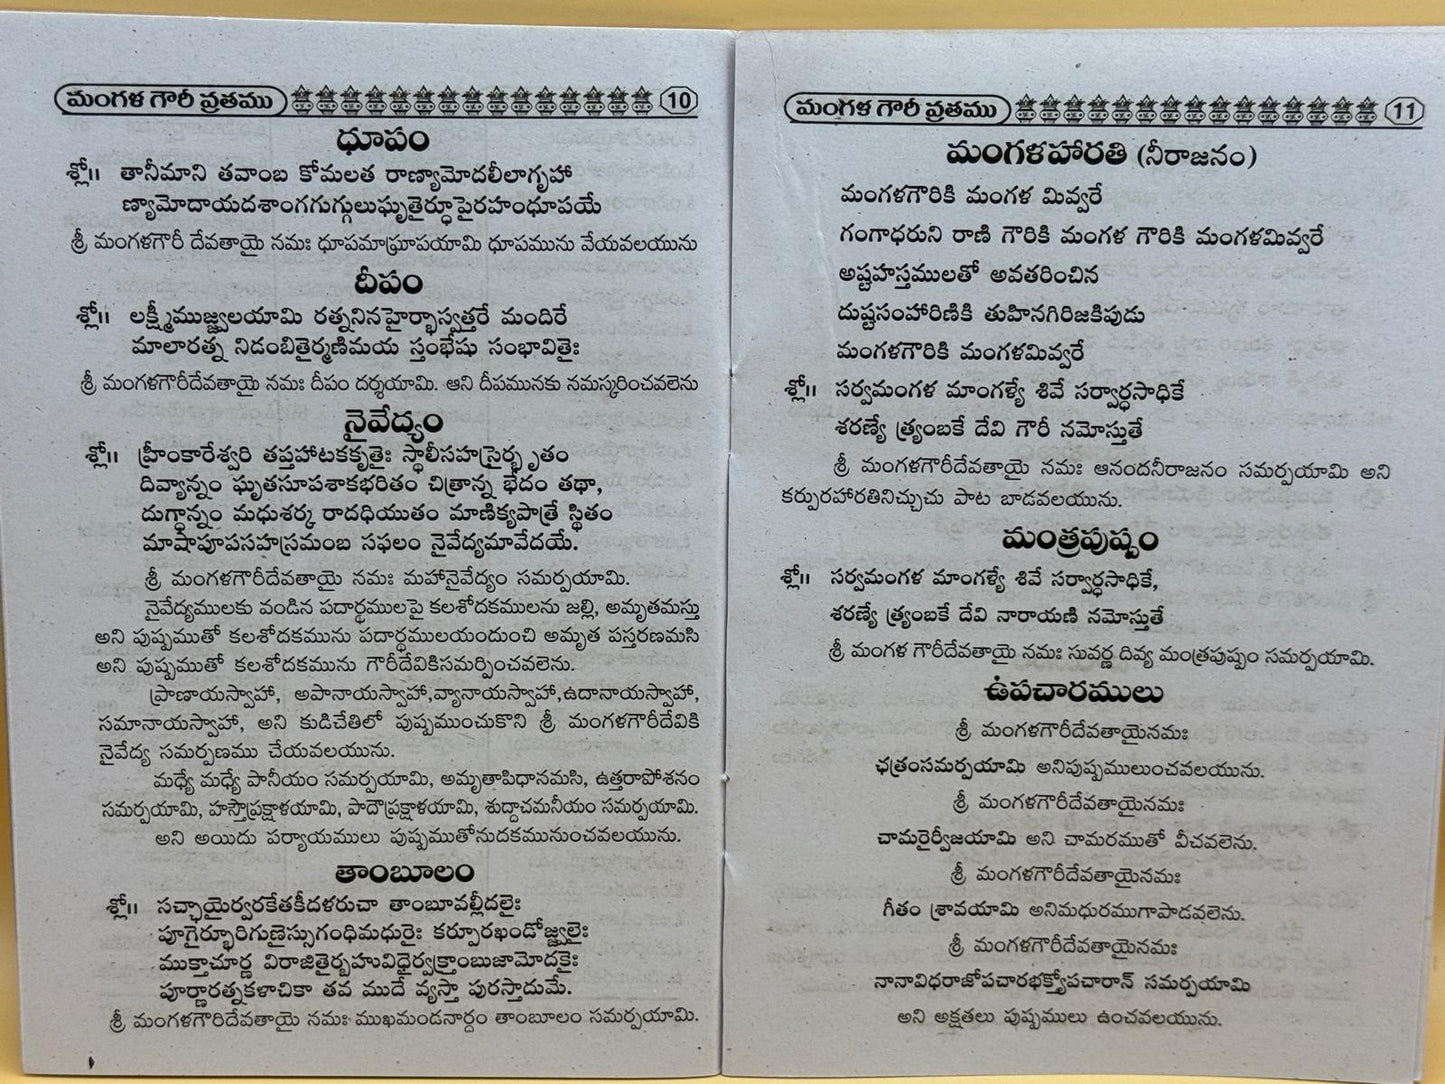 మంగళ గౌరీ వ్రతము 10
ధూపం
శ్లో॥ తానీమాని తవాంబ కోమలత రాణ్యామోదలీలాగృహా
ణ్యామోదాయదశాంగగుగ్గులుఘృతైర్ధూపైరహంధూపయే
శ్రీ మంగళగౌరీ దేవతాయై నమః ధూపమాఘ్రాపయామి ధూపమును వేయవలయును
దీపం
శ్లో॥ లక్ష్మీముజ్జ్వలయామి రత్ననినహైర్భాస్వత్తరే మందిరే
మాలారత్న నిడంబితైర్మణిమయ స్తంభేషు సంభావితైః
శ్రీ మంగళగౌరీదేవతాయై నమః దీపం దర్శయామి. ఆని దీపమునకు నమస్కరించవలెను
నైవేద్యం
శ్లో॥ హ్రీంకారేశ్వరి తప్తహాటకకృతైః స్థాలీసహస్రైర్భృతం
దివ్యాన్నం ఘృతసూపశాకభరితం చిత్రాన్న భేదం తథా,
దుగ్ధాన్నం మధుశర్క రాదధియుతం మాణిక్యపాత్రే స్థితం
మాషాపూపసహస్రమంబ సఫలం నైవేద్యమావేదయే.
శ్రీ మంగళగౌరీదేవతాయై నమః మహానైవేద్యం సమర్పయామి.
నైవేద్యములకు వండిన పదార్థములపై కలశోదకములను జల్లి, అమృతమస్తు
అని పుష్పముతో కలశోదకమును పదార్థములయందుంచి అమృత పస్తరణమసి
అని పుష్పముతో కలశోదకమును గౌరీదేవికిసమర్పించవలెను.
ప్రాణాయస్వాహా, అపానాయస్వాహా,వ్యానాయస్వాహా,ఉదానాయస్వాహా,
సమానాయస్వాహా, అని కుడిచేతిలో పుష్పముంచుకొని శ్రీ మంగళగౌరీదేవికి
నైవేద్య సమర్పణము చేయవలయును.
మధ్యే మధ్యే పానీయం సమర్పయామి, అమృతాపిధానమసి, ఉత్తరాపోశనం
సమర్పయామి, హస్తౌప్రక్షాళయామి, పాదౌప్రక్షాళయామి, శుద్ధాచమనీయం సమర్పయామి.
అని అయిదు పర్యాయములు పుష్పముతోనుదకమునుంచవలయును.
తాంబూలం
శ్లో॥ సచ్ఛాయైర్వరకేతకీదళరుచా తాంబూవల్లీదలైః
పూగైర్భూరిగుణైస్సుగంధిమధురైః కర్పూరఖండోజ్జ్వలైః
ముక్తాచూర్ణ విరాజితైర్బహువిధైర్వక్త్రాంబుజామోదకైః
పూర్ణారత్నకళాచికా తవ ముదే వ్యస్తా పురస్తాదుమే.
శ్రీ మంగళగౌరిదేవతాయై నమః ముఖమండనార్థం తాంబూలం సమర్పయామి.
మంగళ గౌరీ వ్రతము 11
మంగళహారతి (నీరాజనం)
మంగళగౌరికి మంగళ మివ్వరే
గంగాధరుని రాణి గౌరికి మంగళ గౌరికి మంగళమివ్వరే
అష్టహస్తములతో అవతరించిన
దుష్టసంహారిణికి తుహినగిరిజకిపుడు
మంగళగౌరికి మంగళమివ్వరే
శ్లో॥ సర్వమంగళ మాంగళ్యే శివే సర్వార్థసాధికే
శరణ్యే త్ర్యంబకే దేవి గౌరీ నమోస్తుతే
శ్రీ మంగళగౌరీదేవతాయై నమః ఆనందనీరాజనం సమర్పయామి అని
కర్పురహారతినిచ్చుచు పాట బాడవలయును.
మంత్రపుష్పం
శ్లో॥ సర్వమంగళ మాంగళ్యే శివే సర్వార్థసాధికే,
శరణ్యే త్ర్యంబకే దేవి నారాయణి నమోస్తుతే
శ్రీ మంగళ గౌరీదేవతాయై నమః సువర్ణ దివ్య మంత్రపుష్పం సమర్పయామి.
ఉపచారములు
శ్రీ మంగళగౌరీదేవతాయైనమః
ఛత్రంసమర్పయామి అనిపుష్పములుంచవలయును.
శ్రీ మంగళగౌరీదేవతాయైనమః
చామరైర్వీజయామి అని చామరముతో వీచవలెను.
శ్రీ మంగళగౌరీదేవతాయైనమః
గీతం శ్రావయామి అనిమధురముగాపాడవలెను.
శ్రీ మంగళగౌరీదేవతాయైనమః
నానావిధరాజోపచారభక్త్యోపచారాన్ సమర్పయామి
అని అక్షతలు పుష్పములు ఉంచవలయును.